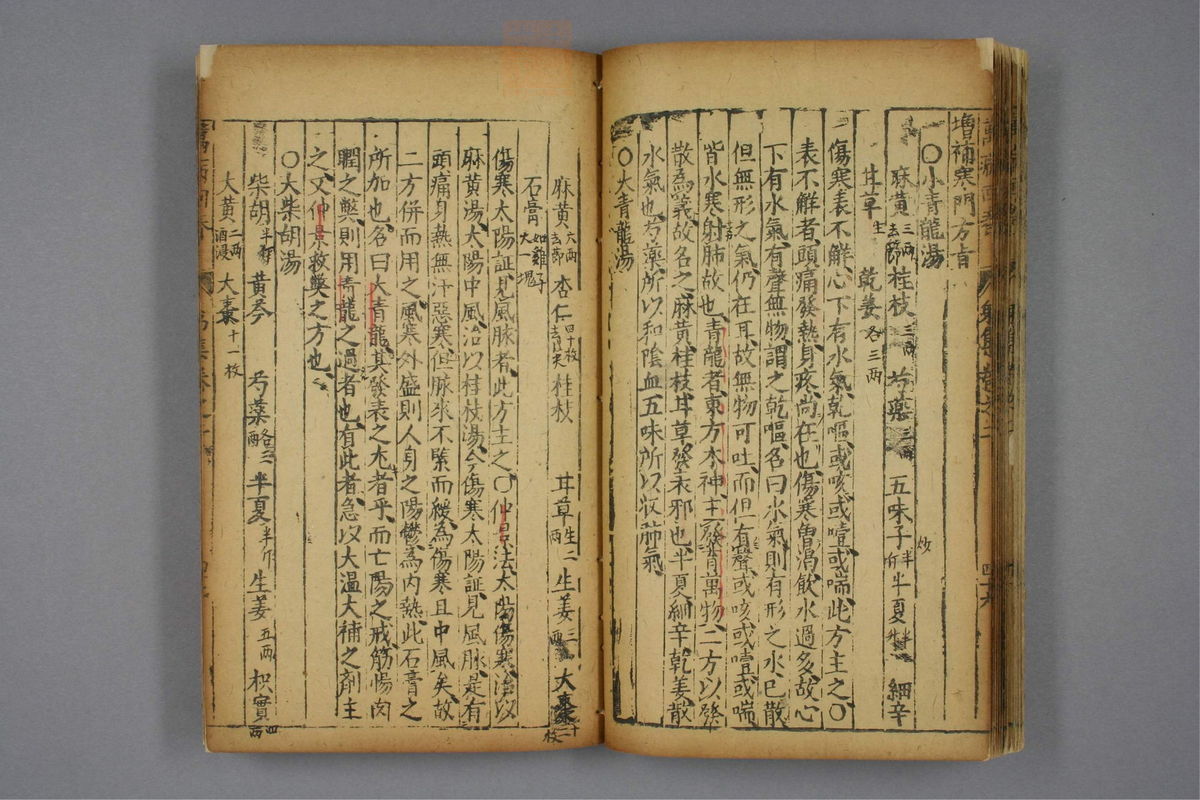 增補寒門方旨
○小青龍湯
麻黄三兩去節 桂枝三兩 芍藥三兩 五味子半斤炒 半夏半升 細辛
甘草生 乾姜各三兩
傷寒表不解心下有水氣乾嘔或咳或噎或喘此方主之○
表不解者頭痛發熱身疼尚在也傷寒曾渴飲水過多故心
下有水氣有聲無物謂之乾嘔名曰水氣則有形之水已散
但無形之氣仍在耳故無物可吐而但有聲或咳或噎或喘
皆水寒射肺故也青龍者東方木神主發育萬物二方以發
散為義故名之麻黄桂枝甘草發表邪也半夏細辛乾姜散
水氣也芍藥所以和陰血五味所以收肺氣
○大青龍湯
麻黄六兩去節 杏仁四十枚去皮尖 桂枝 甘草生二兩 生姜三兩 大棗十二枚
石膏如雞子大一塊
傷寒太陽証見風脉者此方主之○仲景法太陽傷寒治以
麻黄湯太陽中風治以桂枝湯今傷寒太陽証見風脉是有
頭痛身熱無汗惡寒但脉來不緊而緩為傷寒且中風矣故
二方併而用之風寒外盛則人身之陽鬱為内熱此石膏之
所加也名曰大青龍其發表之尤者乎而亡陽之戒筋惕肉
瞤之弊則用青龍之過者也有此者急以大温大補之劑主
之又仲景救弊之方也
○大柴胡湯
柴胡半斤 黄芩 芍藥各三兩 半夏半斤 生姜五兩 枳實四兩
大黄二兩酒浸 大棗十一枚